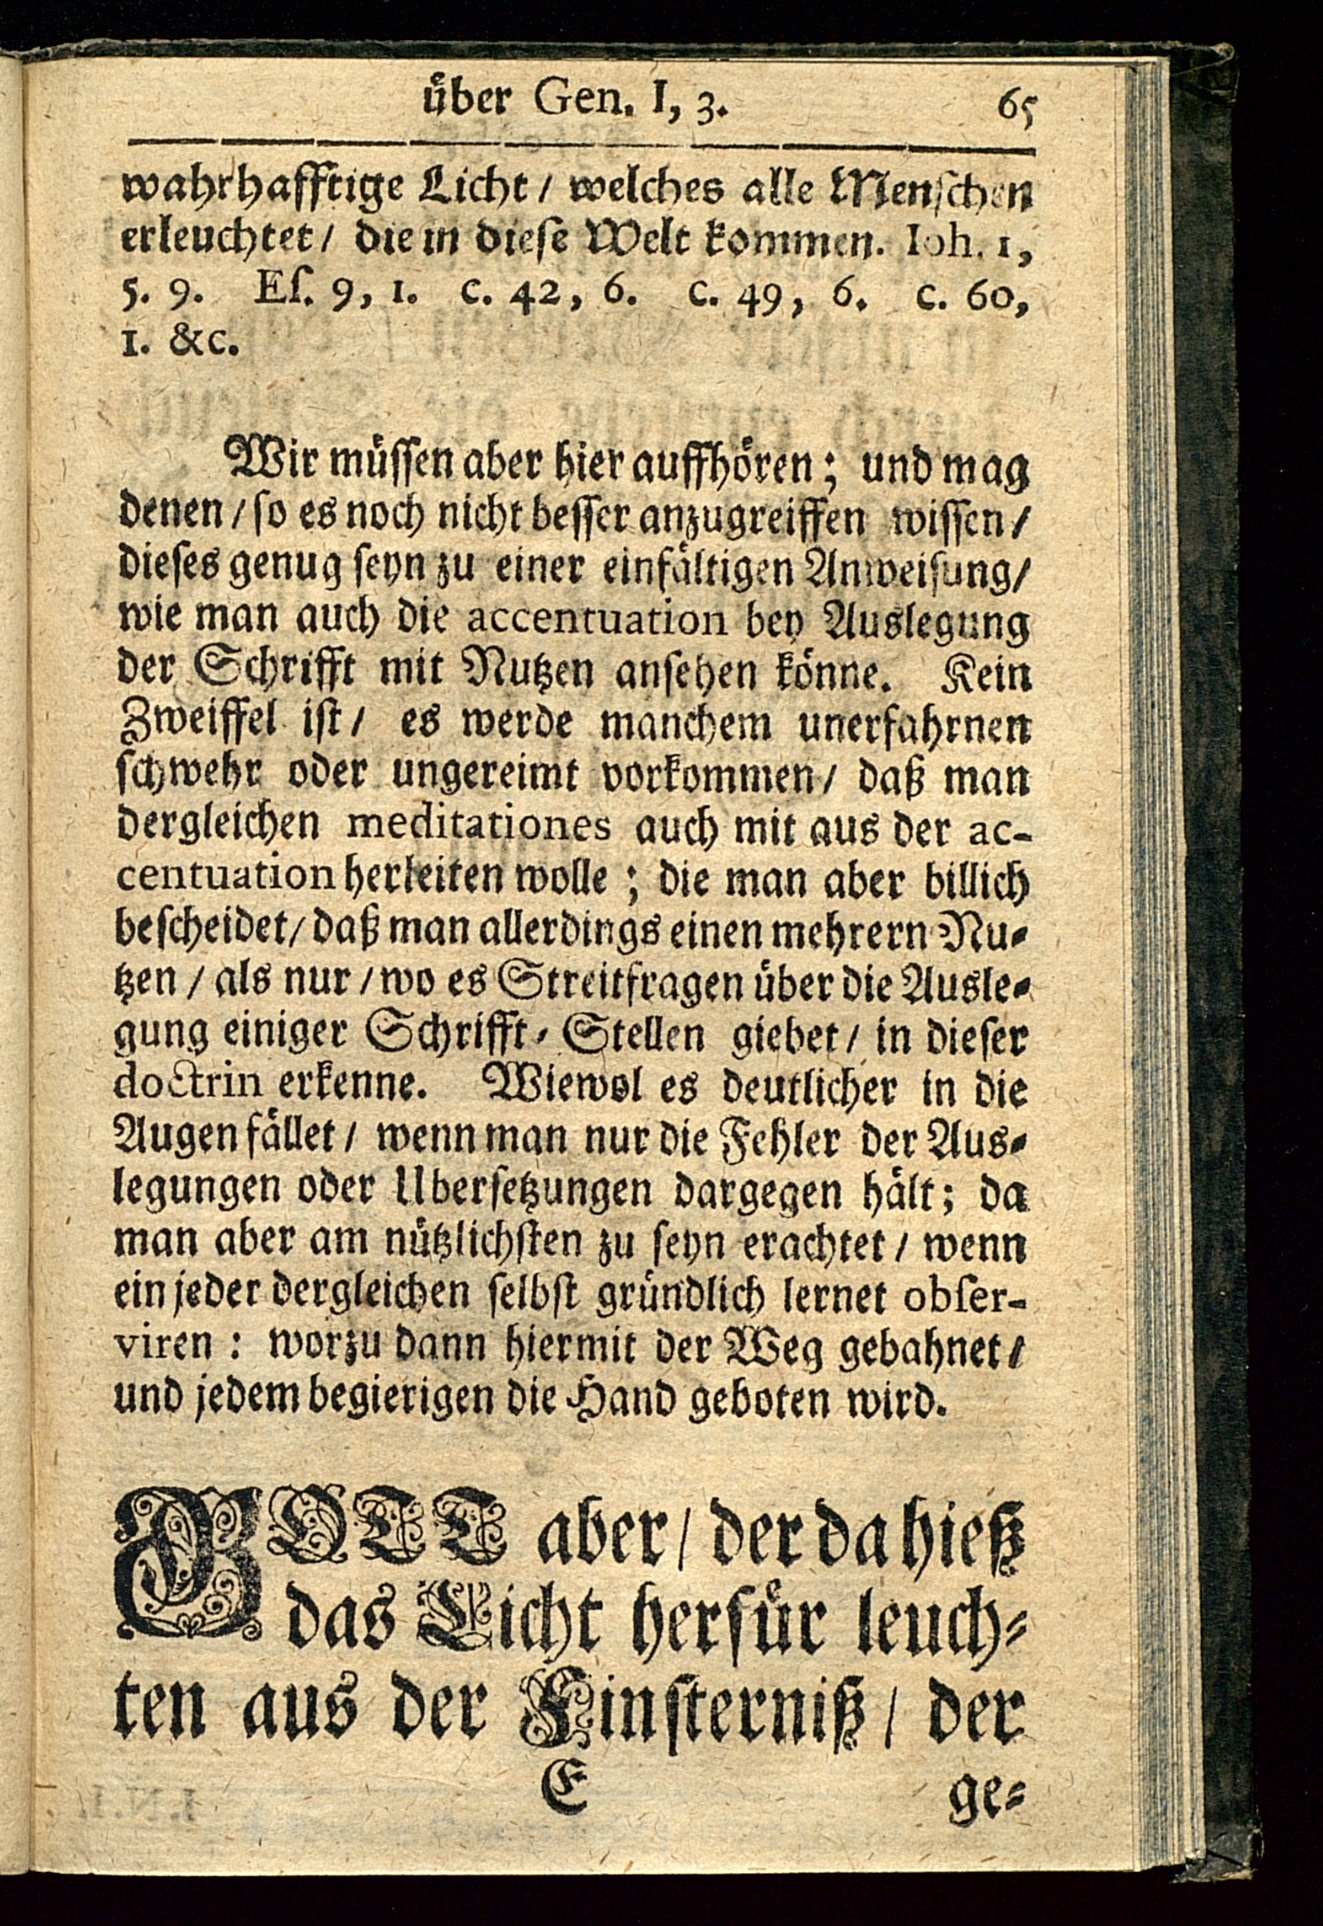 über Gen. I, 3. 65
wahrhafftige Licht / welches alle Menschen
erleuchtet / die in diese Welt kommen. Ioh. 1,
5. 9. Eſ. 9, 1. c. 42, 6. c. 49, 6. c. 60,
1. &c.
Wir müſſen aber hier auffhören; und mag
denen / ſo es noch nicht beſſer anzugreiffen wiſſen /
dieſes genug ſeyn zu einer einfältigen Anweiſung /
wie man auch die accentuation bey Auslegung
der Schrifft mit Nutzen anſehen könne. Kein
Zweiffel iſt / es werde manchem unerfahrnen
ſchwehr oder ungereimt vorkommen / daß man
dergleichen meditationes auch mit aus der ac-
centuation herleiten wolle ; die man aber billich
beſcheidet / daß man allerdings einen mehrern Nu-
tzen / als nur / wo es Streitfragen über die Ausle-
gung einiger Schrifft-Stellen giebet / in dieſer
doctrin erkenne. Wiewol es deutlicher in die
Augen fället / wenn man nur die Fehler der Aus-
legungen oder Uberſetzungen dargegen hält; da
man aber am nützlichſten zu ſeyn erachtet / wenn
ein jeder dergleichen ſelbſt gründlich lernet obſer-
viren : worzu dann hiermit der Weg gebahnet /
und jedem begierigen die Hand geboten wird.
GOTT aber / der da hieß
das Licht herfür leuch-
ten aus der Finſterniß / der
E ge-